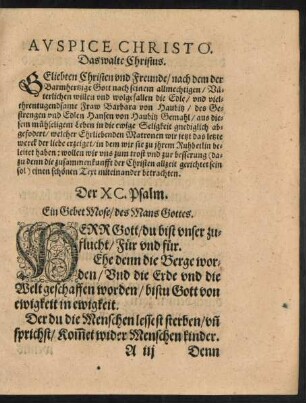 AVSPICE CHRISTO.
Das walte Christus.
GEliebten Christen vnd Freunde / nach dem der
Barmhertzige Gott nach seinem allmechtigen / Vä-
terlichen willen vnd wolgefallen die Edle / vnd viel-
ehrentugendsame Fraw Barbara von Haubitz / des Ge-
strengen vnd Edlen Hansen von Haubitz Gemahl / aus die-
sem mühseligem Leben in die ewige Seligkeit gnediglich ab-
gefodert / welcher Ehrliebenden Matronen wir itzt das letzte
werck der liebe erzeiget / in dem wir sie zu jhrem Ruhbetlin be-
leitet haben : wollen wir vns zum trost vnd zur besserung (da-
zu denn die zusammenkunfft der Christen allzeit gerichtet sein
sol) einen schönen Text miteinander betrachten.
Der XC. Psalm.
Ein Gebet Mose / des Mans Gottes.
HERR Gott / du bist vnser zu-
flucht / Für vnd für.
Ehe denn die Berge wor-
den / Vnd die Erde vnd die
Welt geschaffen worden / bistu Gott von
ewigkeit in ewigkeit.
Der du die Menschen lessest sterben / vñ
sprichst / Kom̃et wider Menschen kinder.
A iij Denn